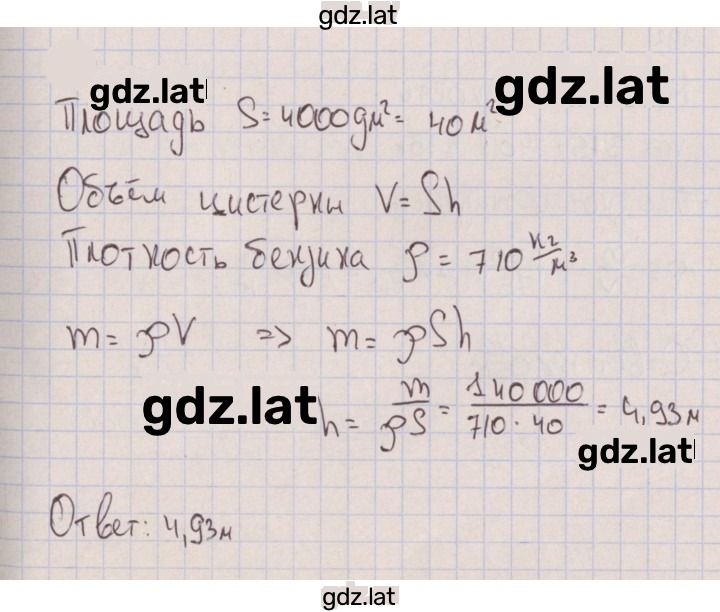 gdz.lat
gdz.lat
gdz.lat
Площадь S = 4000 дм² = 40 м²
Объём цистерны V = Sh
Плотность бензина ρ = 710 кг/м³
m = ρV => m = ρSh
gdz.lat
h = m/ρS = 140 000/710 · 40 = 4,93 м
gdz.lat
Ответ: 4,93 м
gdz.lat